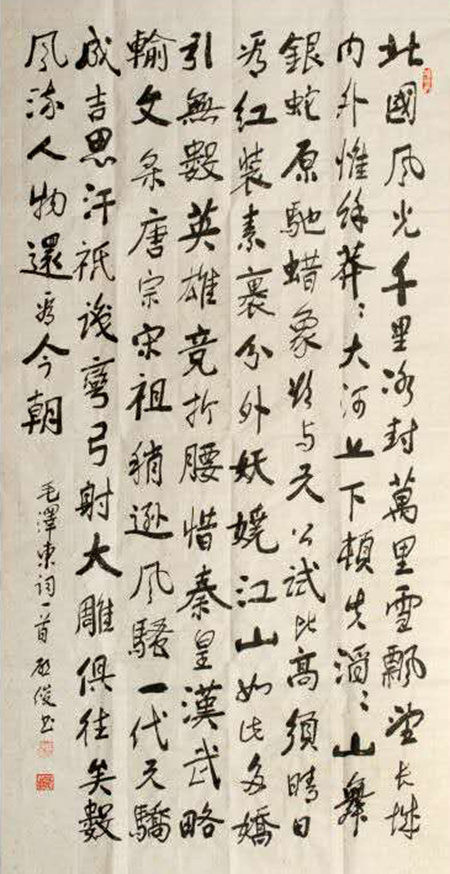 北國风光千里冰封萬里雪飄望长城
内外惟餘莽〻大河上下頓失滔〻山舞
銀蛇原馳蜡象欲与天公試比高須晴日
看红裝素裹分外妖嬈江山如此多嬌
引無數英雄竞折腰惜秦皇漢武略
輸文采唐宗宋祖稍遜风騷一代天驕
成吉思汗祇識彎弓射大雕俱往矣數
风流人物還看今朝
毛澤東词一首 俊书